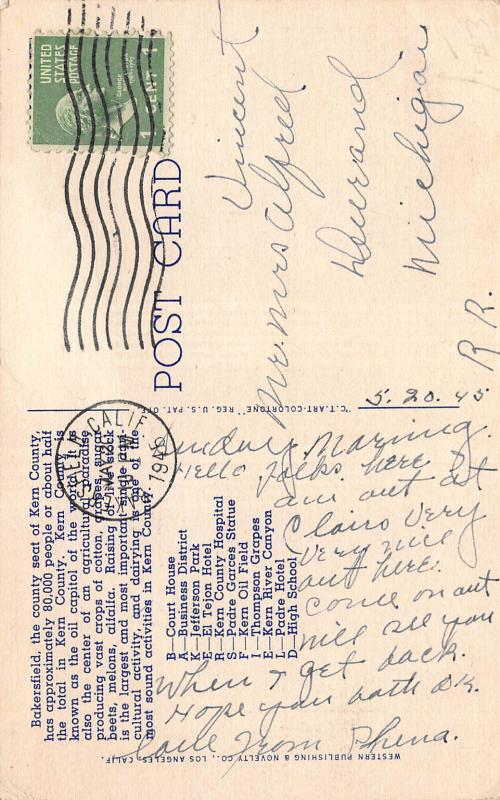 UNITED
STATES
POSTAGE
GEORGE
1 CENT 1
POST CARD
Mr. Mrs Alfred
Vincent
Durand
Michigan
R R.
5-20.45
CALIF.
1945
Sunday Morning.
Hello folks here I
am out at
Clairs Very
very nice
out here.
Come on out
will see you
When I get back.
Hope you both O.K.
Love From Rhena.
Bakersfield, the county seat of Kern County,
has approximately 80,000 people or about half
the total in Kern County. Kern County is
known as the oil capitol of the world. It is
also the center of an agricultural paradise
producing vast crops of cotton, grapes, sugar
beets, melons, alfalfa. Raising of live stock
is the largest and most important single agri-
cultural activity, and dairying is one of the
most sound activities in Kern County.
B—Court House
A—Business District
K—Jefferson Park
E—El Tejon Hotel
R—Kern County Hospital
S—Padre Garces Statue
F—Kern Oil Field
I—Thompson Grapes
E—Kern River Canyon
L—Padre Hotel
D—High School
"C.T.ART-COLORTONE" REG. U.S. PAT. OFF.
WESTERN PUBLISHING & NOVELTY CO., LOS ANGELES, CALIF.